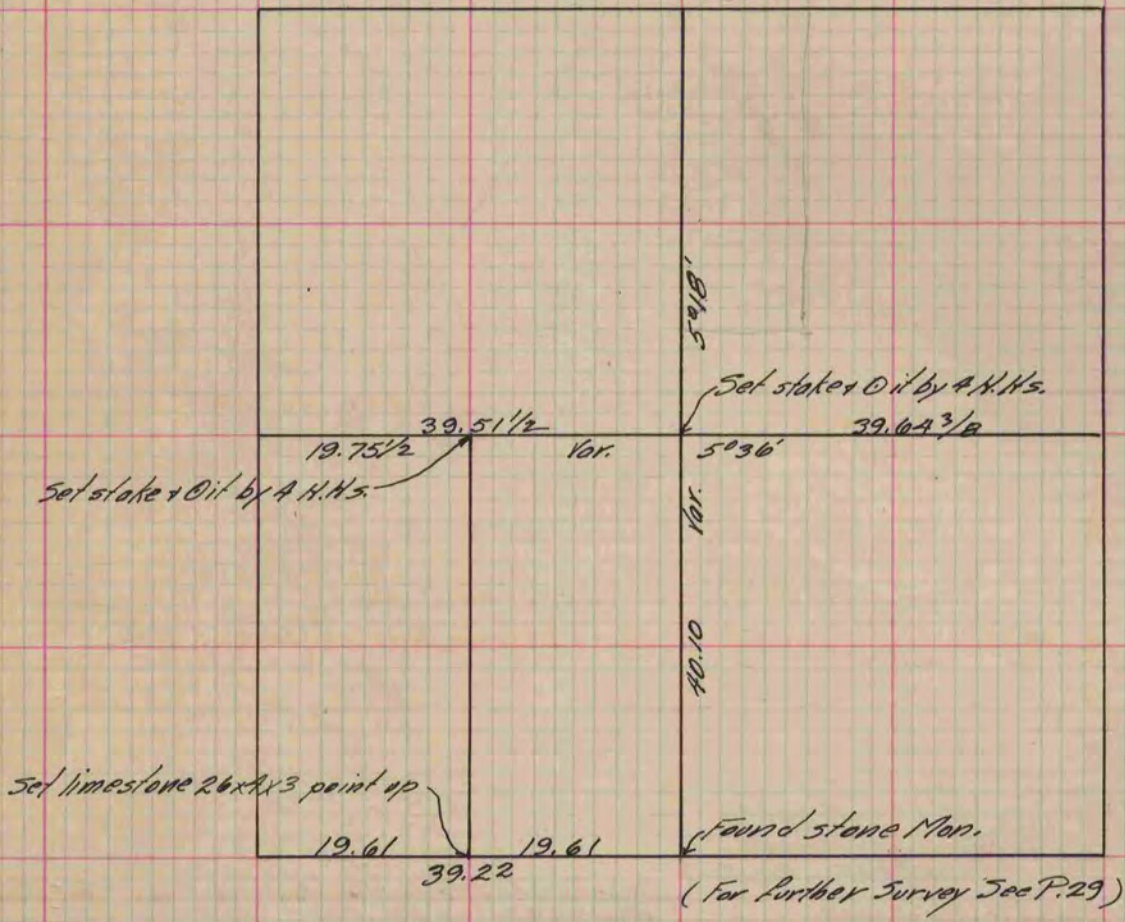 5°18'
Set stake & ⊙ it by 4 H.Hs.
39.51 1/2
39.64 3/8
19.75 1/2
Var.
5°36'
Set stake & ⊙ it by 4 H.Hs.
Var.
40.10
Set limestone 26x4x3 point up
Found stone Mon.
19.61
19.61
39.22
(For further Survey See P.29)